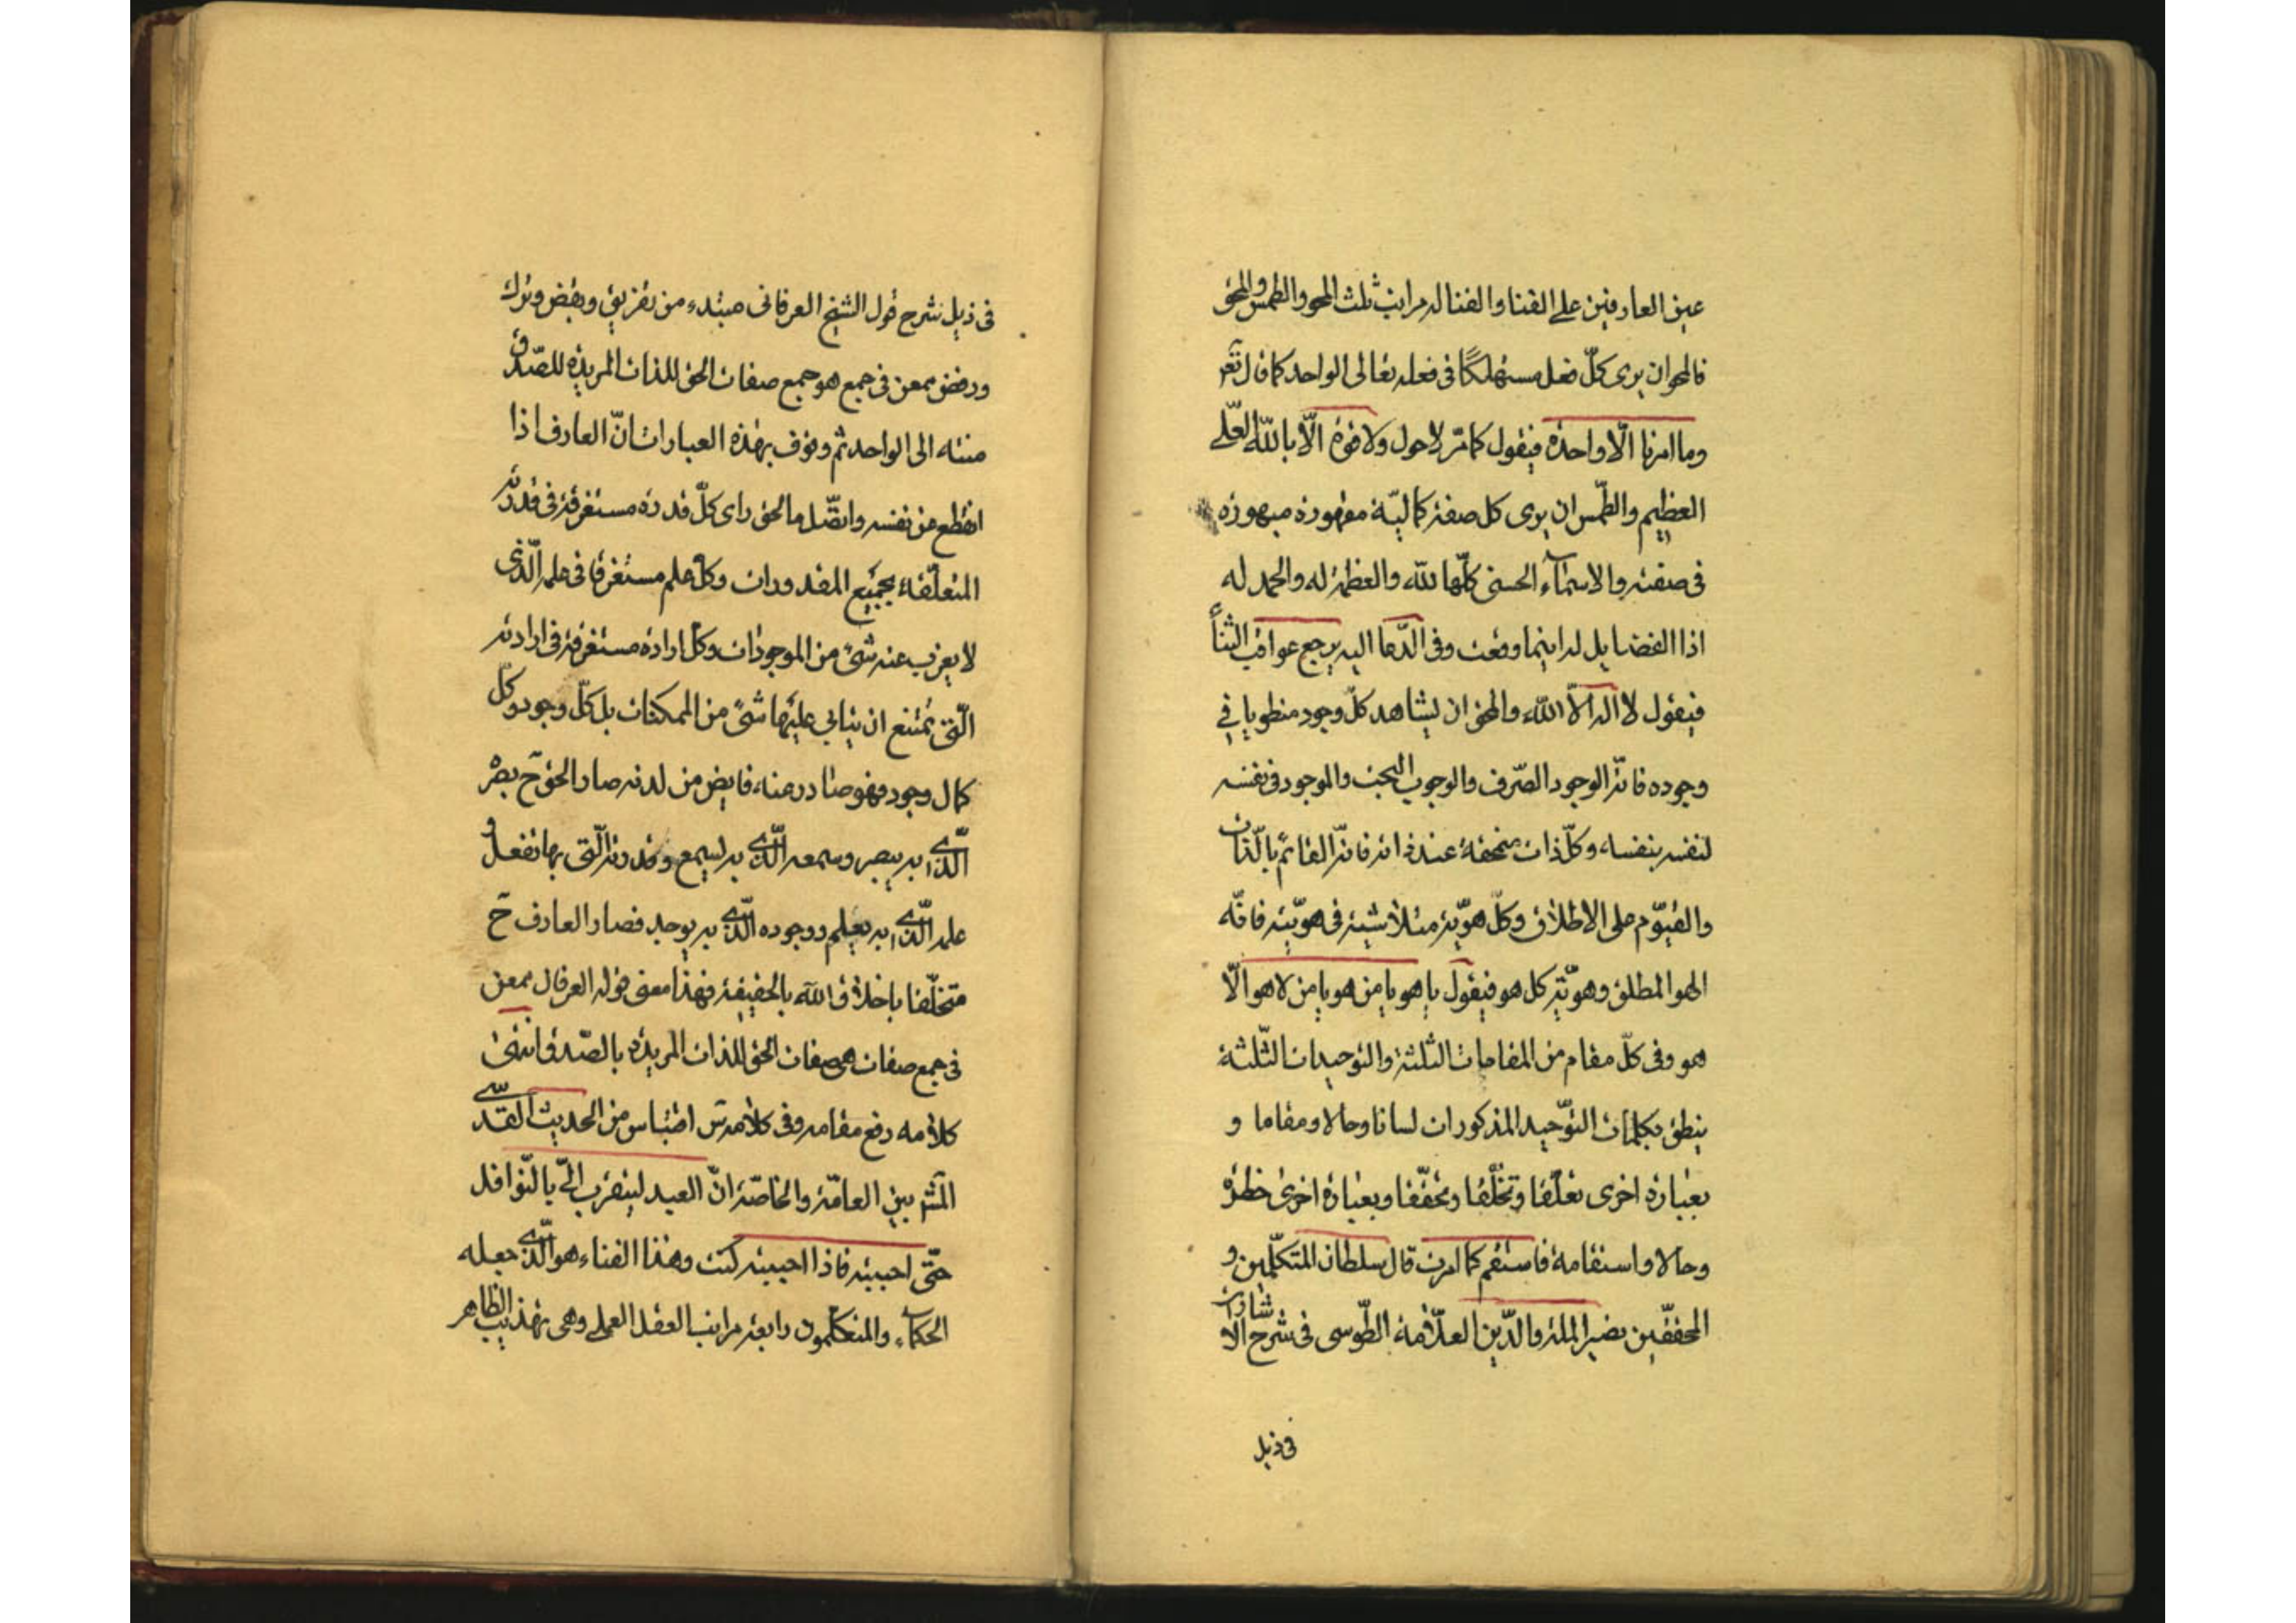 عين العارفين على الفنا والفنا له مراتب ثلث المحو والطمس والمحق
فالمحو ان يرى كلّ فعل مستهلكًا فى فعله تعالى الواحد كما قال تعَ
وما امرنا الّا واحدة فيقول كما مرّ لا حول ولا قوة الّا باللّه العّلى
العظيم والطّمس ان يرى كل صفة كماليّة مقهورة مبهورة
فى صفته والاسمآء الحسنى كلّها للّه والعظمة له والحمد له
اذا الفضايل له اينما وقعت وفى الدّعا اليه يرجع عواقب الثنآ
فيقول لا اله الّا اللّه والمحق ان يشاهد كلّ وجود منطويا فى
وجوده فانّه الوجود الصّرف والوجوب البحت والموجود فى نفسه
لنفسه بنفسه وكلّ ذات منحقة عند ذاته فانّه القائم بالّذات
والقيّوم على الاطلاق وكلّ هويّة متلاشية فى هويّته فانّه
الهو المطلق وهويّة كل هو فيقول يا هو يا من هو يا من لا هو الّا
هو وفى كلّ مقام من المقامات الثلثة والتوحيدات الثّلثة
ينطق بكلمات التوّحيد المذكورات لسانا وحالا ومقاما و
بعبارة اخرى تعلّقا وتخلّقا وتحقّقا وبعبارة اخرى خطرة
وحالا واستقامة فاستقم كما امرت قال سلطان المتكلّمين و
المحققّين نصير الملة والدّين العلّامة الطّوسى فى شرح الاشارات
فى ذيل
فى ذيل شرح قول الشيخ العرفانى مبتدء من تفريق ونفض وترك
ورفض ممعن فى جمع هو جمع صفات الحق للذات المريدة للصّدق
منته الى الواحد ثم وقوف بهذه العبارات انّ العارف اذا
انقطع عن نفسه واتصّل بالحق راى كلّ قدرة مستغرقة فى قدرته
المتعلّقة بجميع المقدورات وكلّ علم مستغرقا فى علمه الّذى
لا يعزب عنه شىء من الموجودات وكلّ ارادة مستغرقة فى ارادته
الّتى يمتنع ان يتابى عليها شىء من الممكنات بل كلّ وجود وكل
كمال وجود فهو صادر عنه فايض من لدنه صار الحق حَ بصره
الّذى به يبصر وسمعه الّذى به يسمع وقدرته الّتى بها تفعل و
علمه الّذى به يعلم ووجوده الّذى به يوجد فصار العارف حَ
متخلّقا باخلاق اللّه بالحقيقة فهذا معنى قوله العرفان ممعن
فى جمع صفات هى صفات الحق للذات المريدة بالصّدق انتهى
كلامه رفع مقامه وفى كلامه سَ اقتباس من الحديث القدّسى
المَشر بين العامّة والخاصّة انّ العبد ليتقرب الىّ بالنّوافل
حتّى احببته فاذا احببته كنت وهذا الفناء هو الّذى جعله
الحكمآء والمتكلّمون رابعة مراتب العقل العملى وهى تهذيب الظاهر